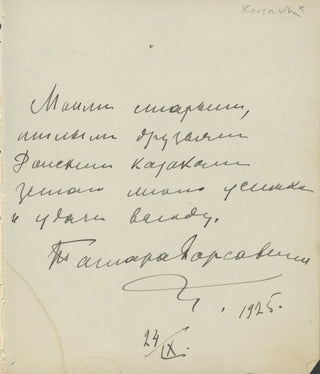 Karsavina
Моим старым,
милым друзьям
Донским казакам
желаю много успеха
и удачи всюду.
Тамара Карсавина
1925.
24/IX.